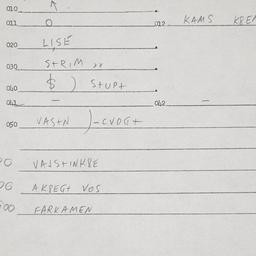 010
011 O 012 KAMS
020 LISÉ
030 STRIM >>
040 $ ) STUPT
041 – 042 –
050 VASTN ) – CVOGT
VAJSTINKBE
AKBEGT VOS
FARKAMEN